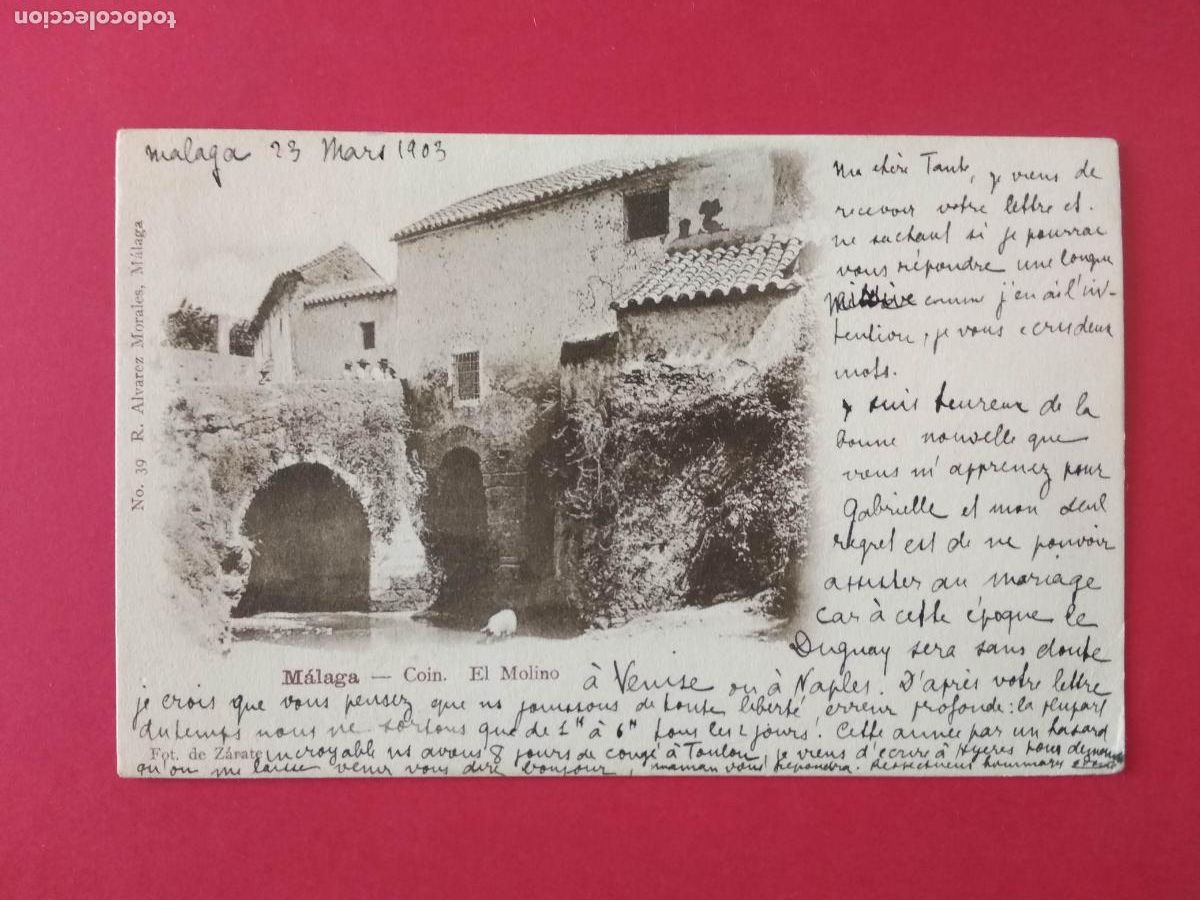 todocoleccion
Malaga 23 Mars 1903
No. 39 R. Alvarez Morales, Málaga
Ma chère Tante, je viens de
recevoir votre lettre et
ne sachant si je pourrai
vous répondre une longue
missive comme j'en ai l'in-
tention, je vous écris deux
mots.
Je suis heureux de la
bonne nouvelle que
vous m'apprenez pour
Gabrielle et mon seul
regret est de ne pouvoir
assister au mariage
car à cette époque le
Duguay sera sans doute
Málaga — Coin. El Molino
à Venise ou à Naples. D'après votre lettre
je crois que vous pensez que ns jouissons de toute liberté, erreur profonde: la plupart
du temps nous ne sortons que de 1h à 6h tous les 2 jours. Cette année par un hasard
Fot. de Zárate
incroyable ns avons 8 jours de congé à Toulon, je viens d'écrire à Hyères pour demander
qu'on me laisse venir vous dire bonjour, maman vous répondra. Respectueux hommages